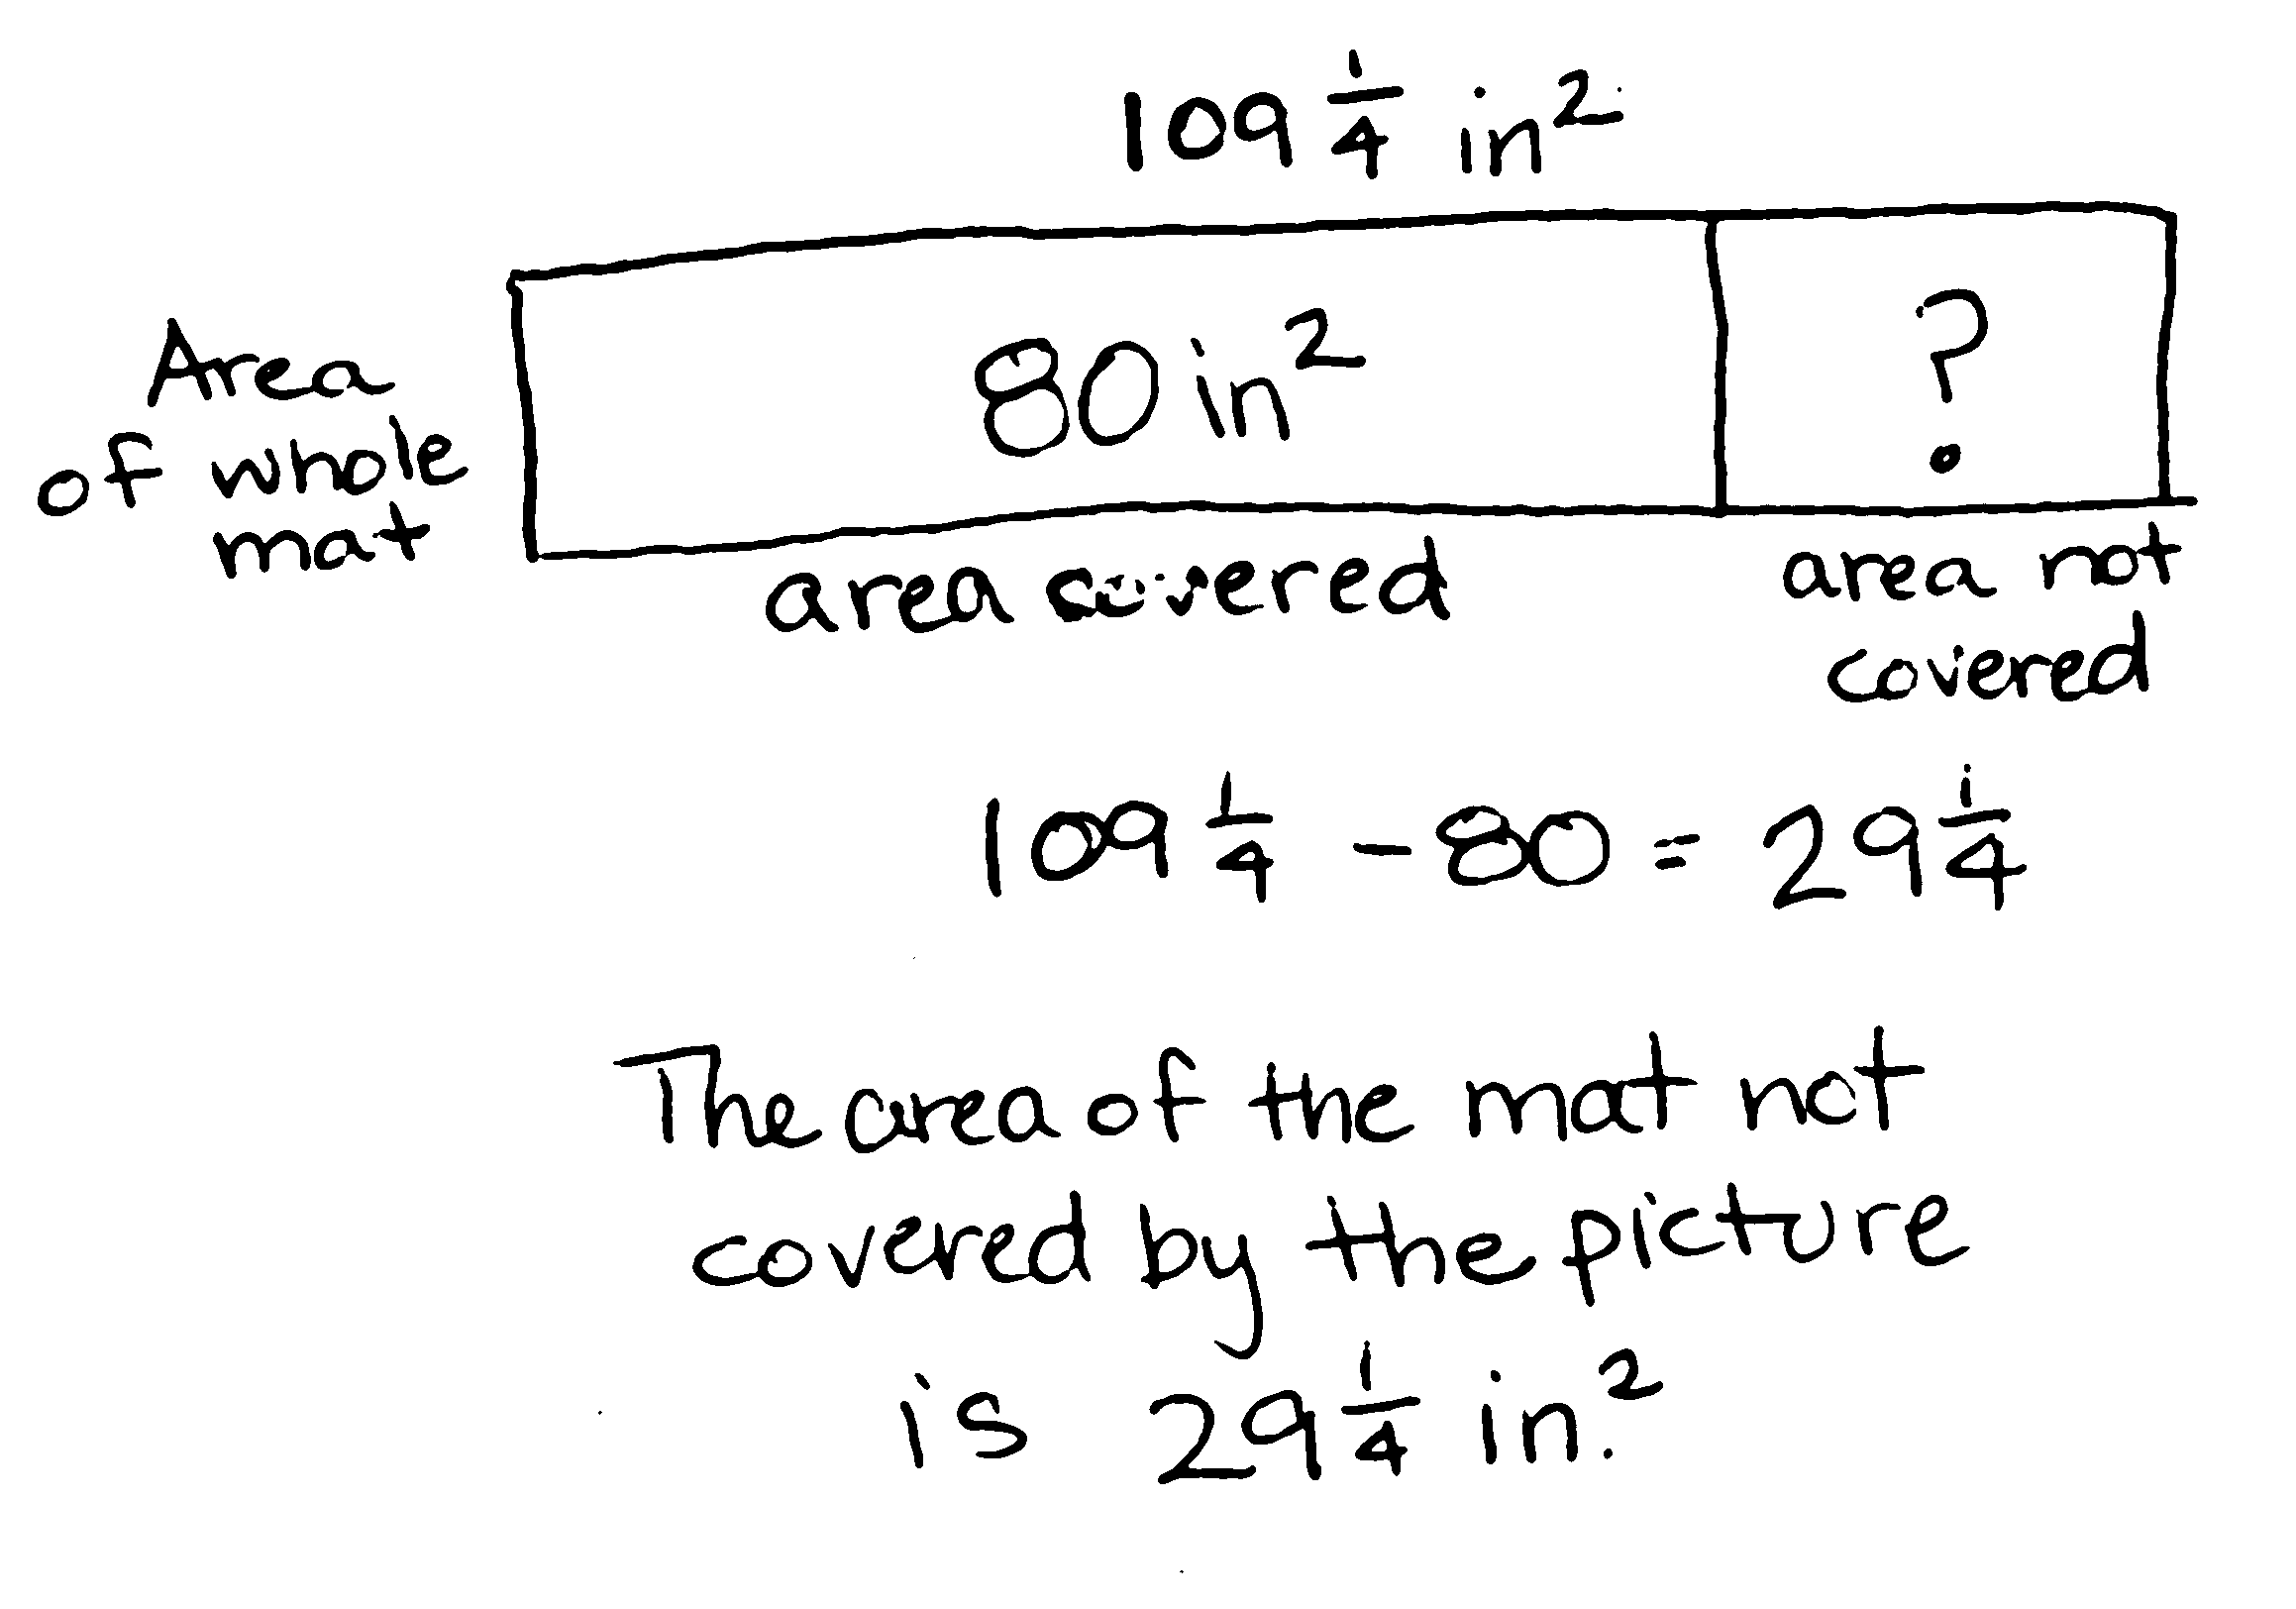 109 1/4 in²
Area
of whole
mat
80 in²
?
area covered
area not
covered
109 1/4 - 80 = 29 1/4
The area of the mat not
covered by the picture
is 29 1/4 in.²